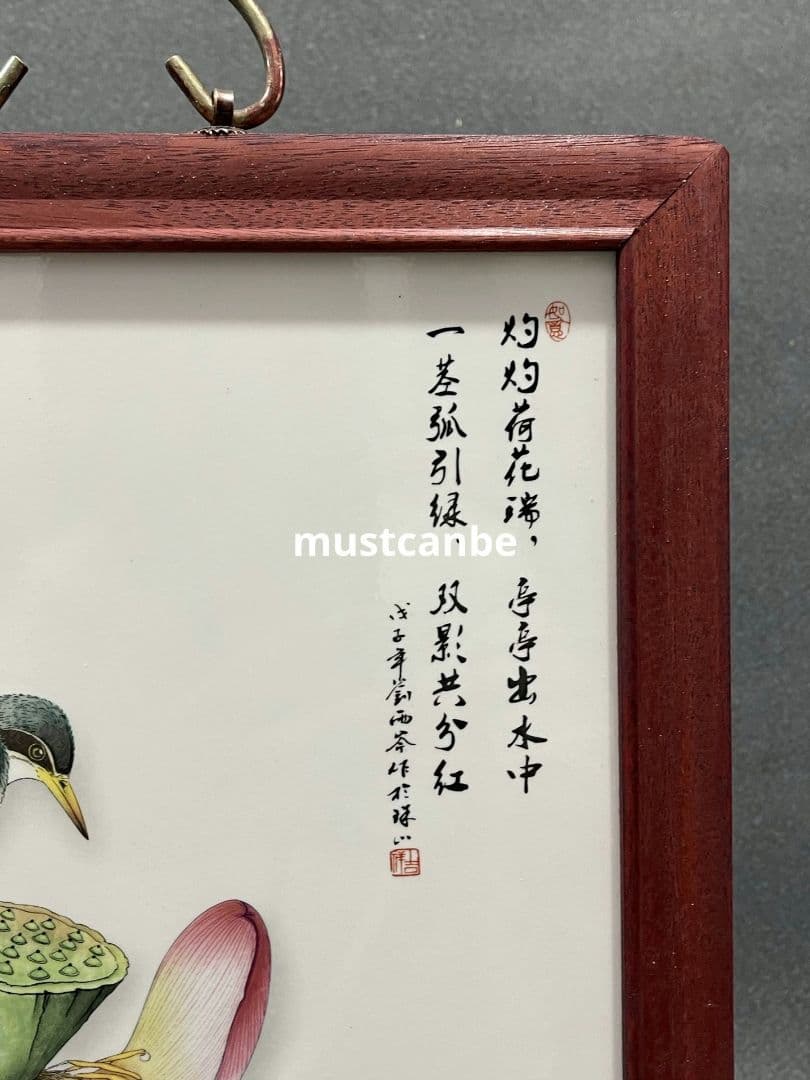 如意
灼灼荷花瑞，亭亭出水中
一茎孤引绿，双影共分红
戊子年劉雨岑作於珠山
mustcanbe